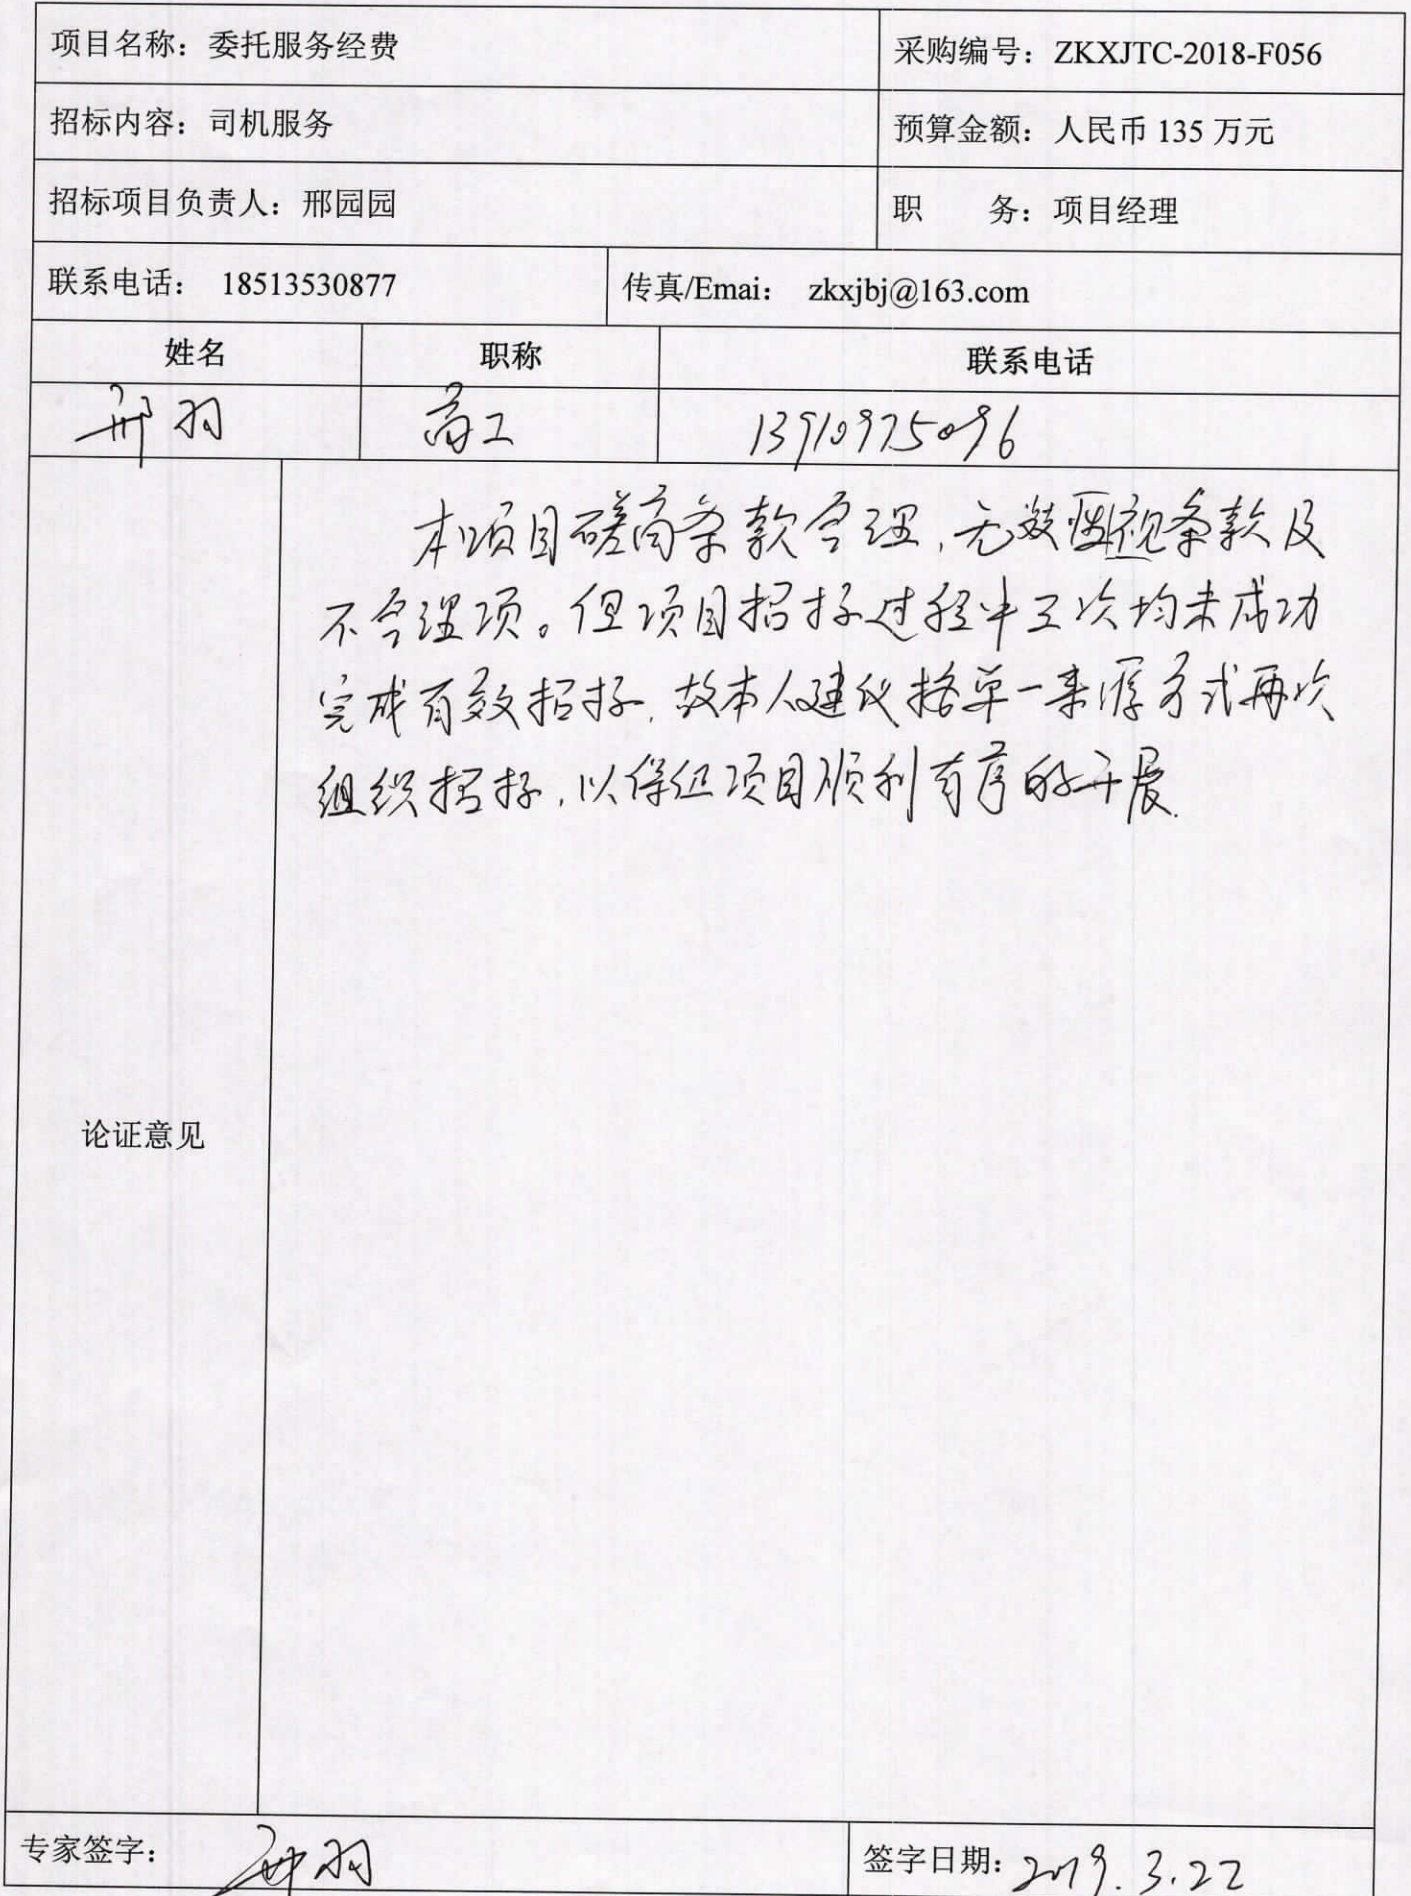 项目名称：委托服务经费
采购编号：ZKXJTC-2018-F056
招标内容：司机服务
预算金额：人民币 135 万元
招标项目负责人：邢园园
职 务：项目经理
联系电话： 18513530877
传真/Emai： zkxjbj@163.com
姓名 职称 联系电话
邢羽 高工 13910975096
论证意见
本项目磋商条款合理，无歧视条款及
不合理项。但项目招标过程中三次均未成功
完成有效招标，故本人建议按单一来源方式再次
组织招标，以保证项目顺利有序的开展.
专家签字： 邢羽
签字日期：2019.3.22